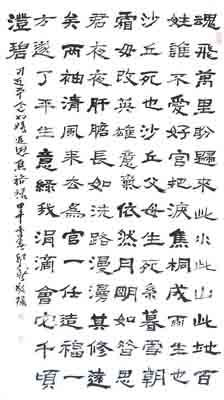 魂飛萬里盼歸來此水此山此地百
姓誰不愛好官把淚焦桐成雨生也
沙丘死也沙丘父老生死系暮雪朝
霜毋改英雄意氣依然月明如昔思
君夜夜肝膽長如洗路漫漫其修遠
矣兩袖清風來去為官一任造福一
方遂了平生意綠我涓滴會它千頃
澄碧
习近平念奴嬌追思焦裕祿 甲午